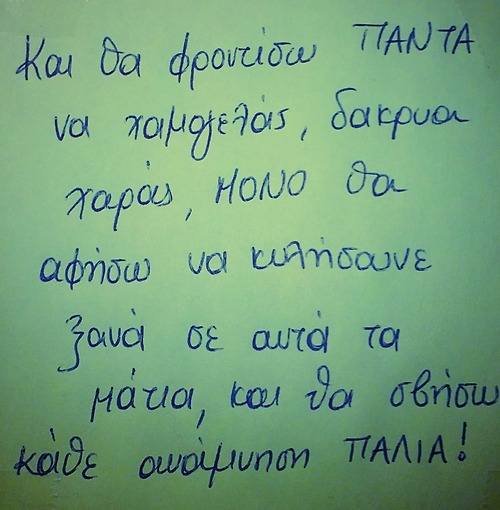 Και θα φροντίσω ΠΑΝΤΑ
να χαμογελάς, δακρυα
χαράς, ΜΟΝΟ θα
αφήσω να κυλήσουνε
ξανά σε αυτά τα
μάτια, και θα σβήσω
κάθε ανάμνηση ΠΑΛΙΑ!